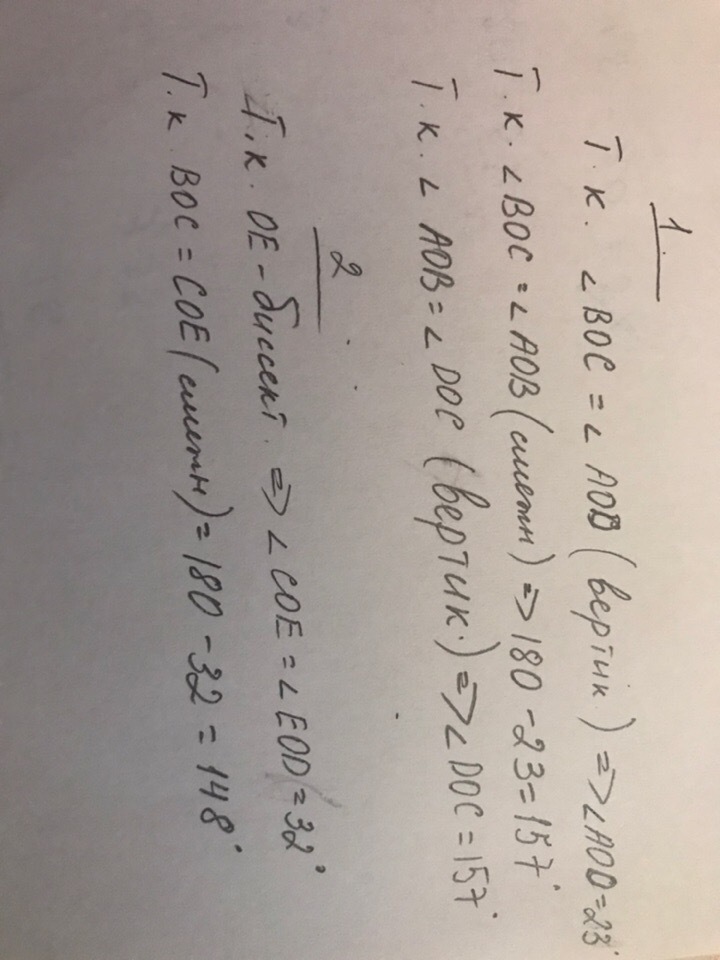 1
Т. к. ∠BOC = ∠AOD (вертик) => ∠AOD = 23°
Т. к. ∠BOC = ∠AOB (смежн) => 180 - 23 = 157°
Т. к. ∠AOB = ∠DOC (вертик.) => ∠DOC = 157°
2
Т. к. OE - биссект. => ∠COE = ∠EOD = 32°
Т. к. BOC = COE (смежн) = 180 - 32 = 148°